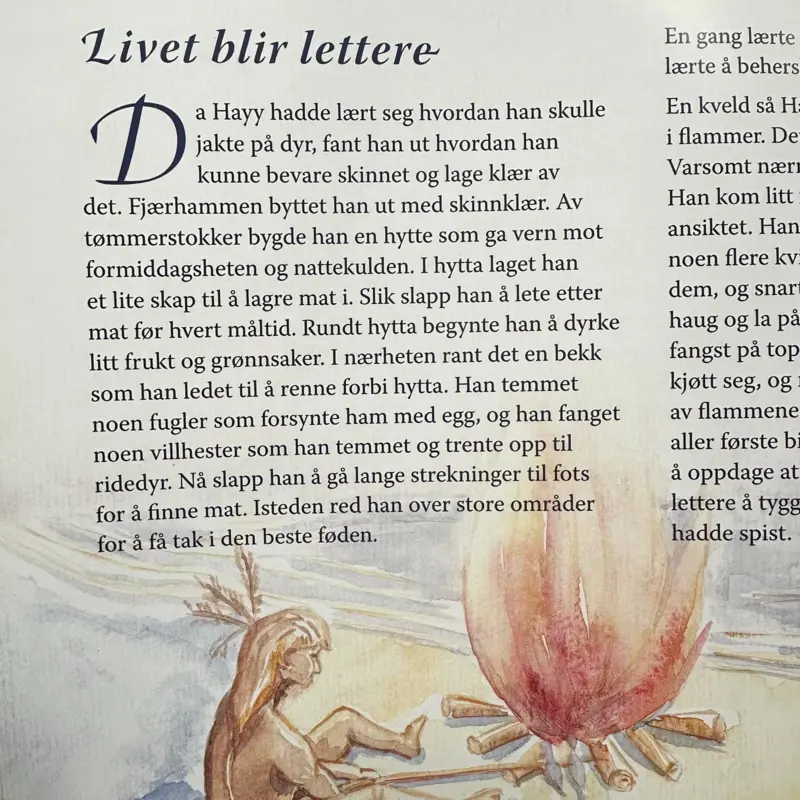 Livet blir lettere
Da Hayy hadde lært seg hvordan han skulle
jakte på dyr, fant han ut hvordan han
kunne bevare skinnet og lage klær av
det. Fjærhammen byttet han ut med skinnklær. Av
tømmerstokker bygde han en hytte som ga vern mot
formiddagsheten og nattekulden. I hytta laget han
et lite skap til å lagre mat i. Slik slapp han å lete etter
mat før hvert måltid. Rundt hytta begynte han å dyrke
litt frukt og grønnsaker. I nærheten rant det en bekk
som han ledet til å renne forbi hytta. Han temmet
noen fugler som forsynte ham med egg, og han fanget
noen villhester som han temmet og trente opp til
ridedyr. Nå slapp han å gå lange strekninger til fots
for å finne mat. Isteden red han over store områder
for å få tak i den beste føden.
En gang lærte
lærte å behers
En kveld så
i flammer.
Varsomt
Han kom litt
ansiktet. Han
noen flere
dem, og snart
haug og la på
fangst på
kjøtt seg, og
av flammene
aller første
å oppdage at
lettere å
hadde spist.